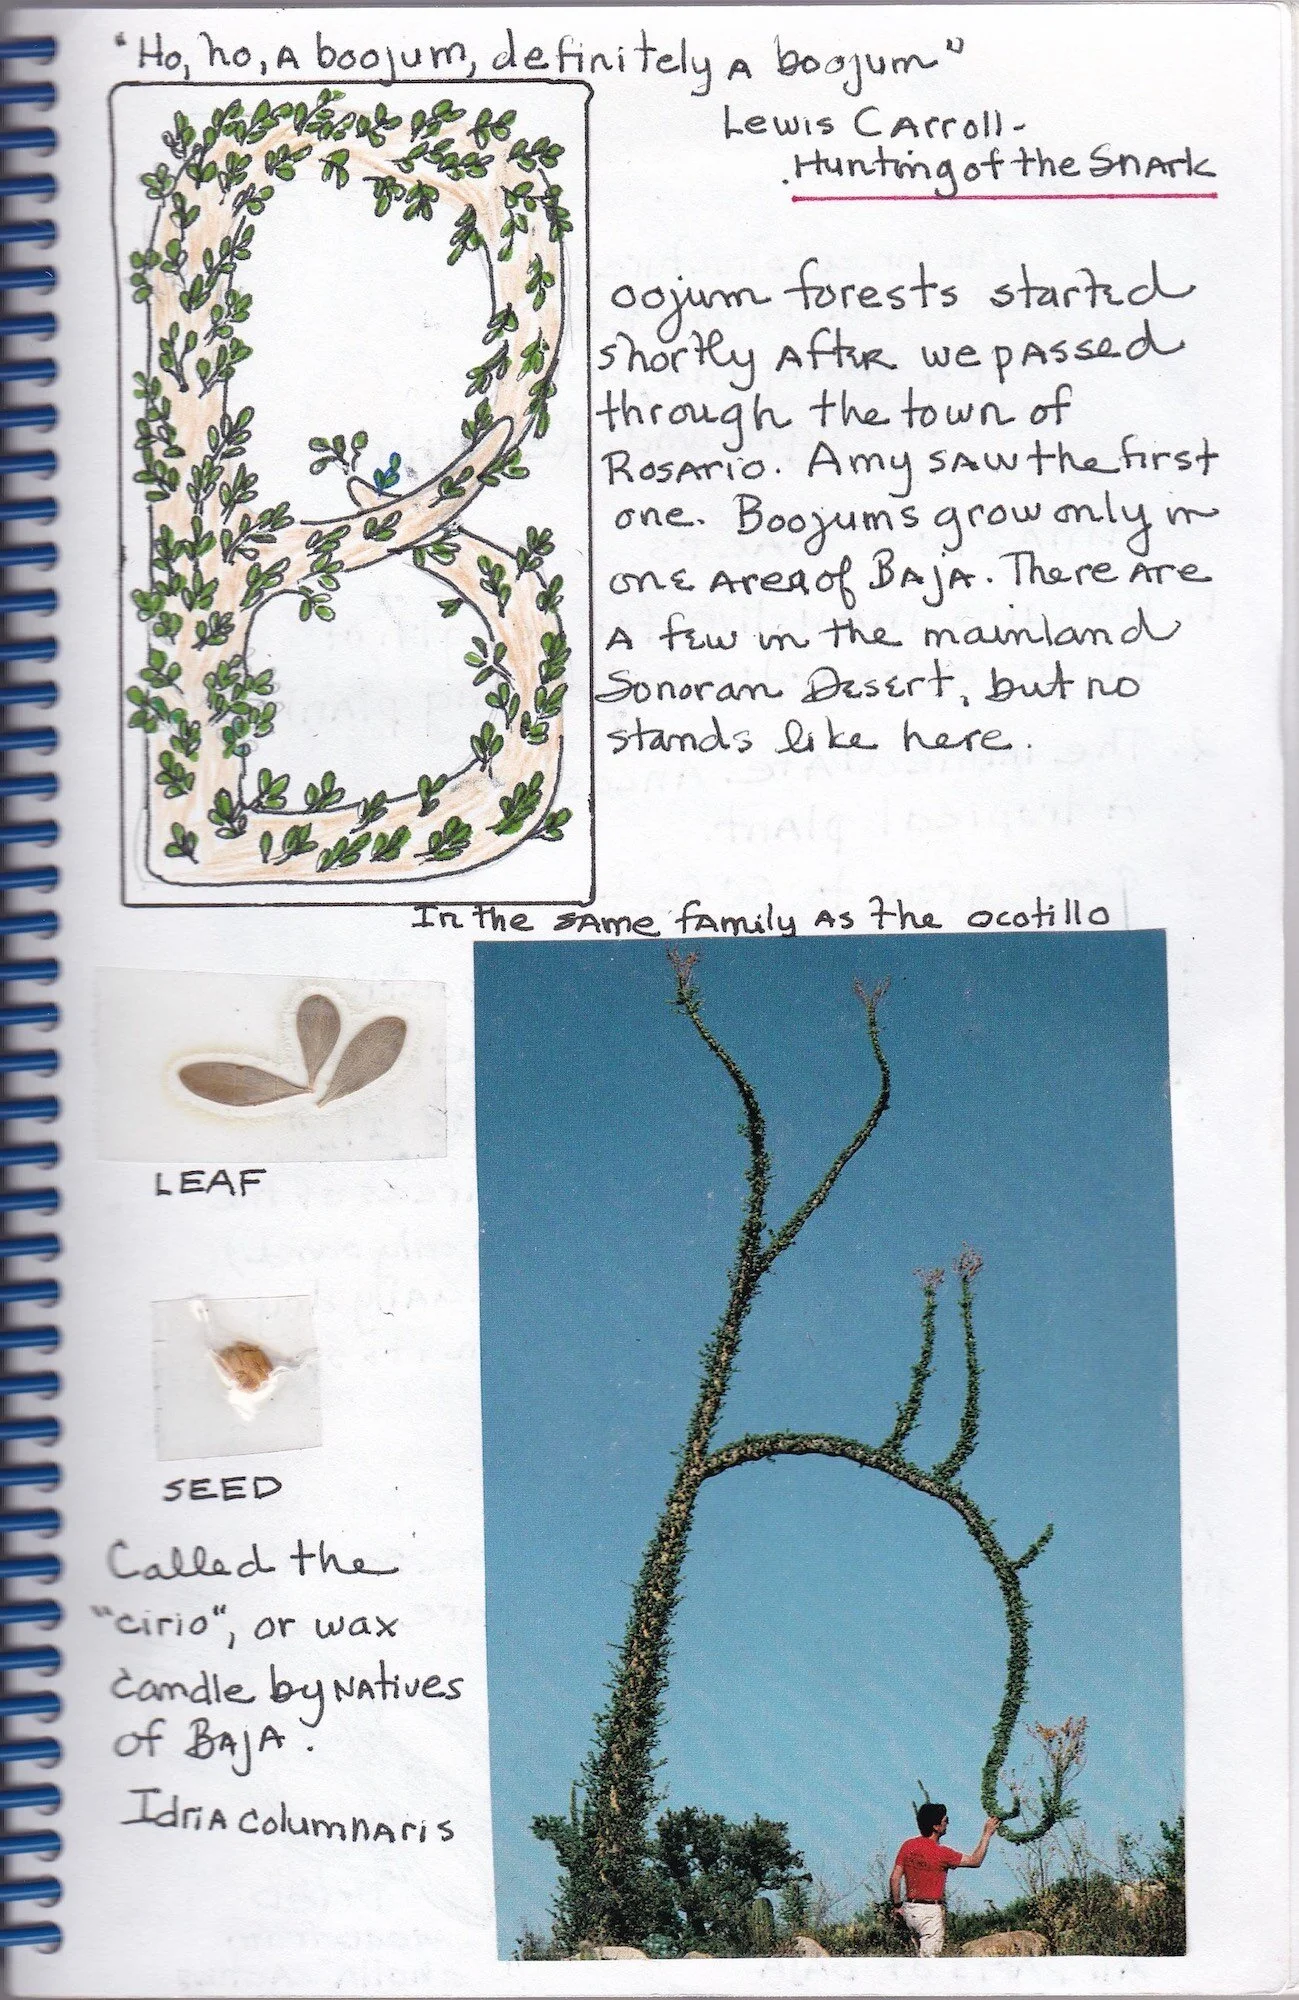 "Ho, ho, A boojum, definitely A boojum"
Lewis Carroll-
.Hunting of the Snark
B
oojum forests started
shortly After we passed
through the town of
Rosario. Amy saw the first
one. Boojums grow only in
one area of Baja. There are
A few in the mainland
Sonoran Desert, but no
stands like here.
In the same family as the ocotillo
LEAF
SEED
Called the
"cirio", or wax
candle by Natives
of Baja.
Idria columnaris